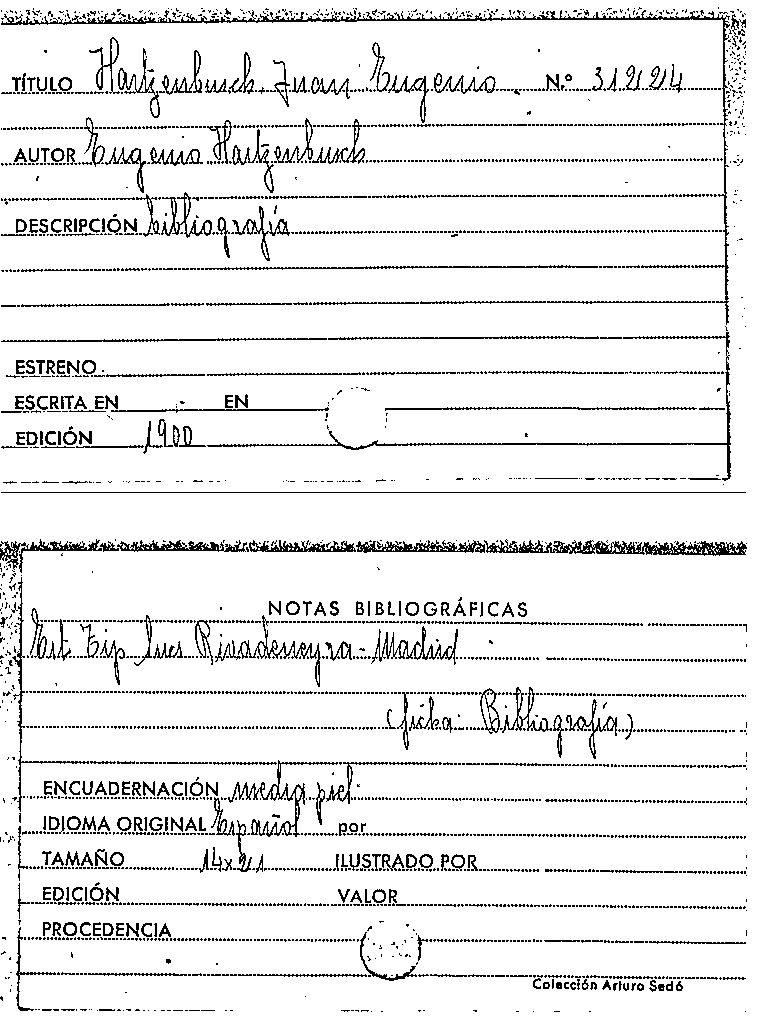 TÍTULO Hartzenbusch. Juan Eugenio. N.º 31224
AUTOR Eugenio Hartzenbusch
DESCRIPCIÓN bibliografía
ESTRENO.
ESCRITA EN EN
EDICIÓN 1900
NOTAS BIBLIOGRÁFICAS
Est Tip Suc Rivadeneyra - Madrid
(ficha: Bibliografía)
ENCUADERNACIÓN media piel.
IDIOMA ORIGINAL Español por
TAMAÑO 14x21 ILUSTRADO POR
EDICIÓN VALOR
PROCEDENCIA
Colección Arturo Sedó